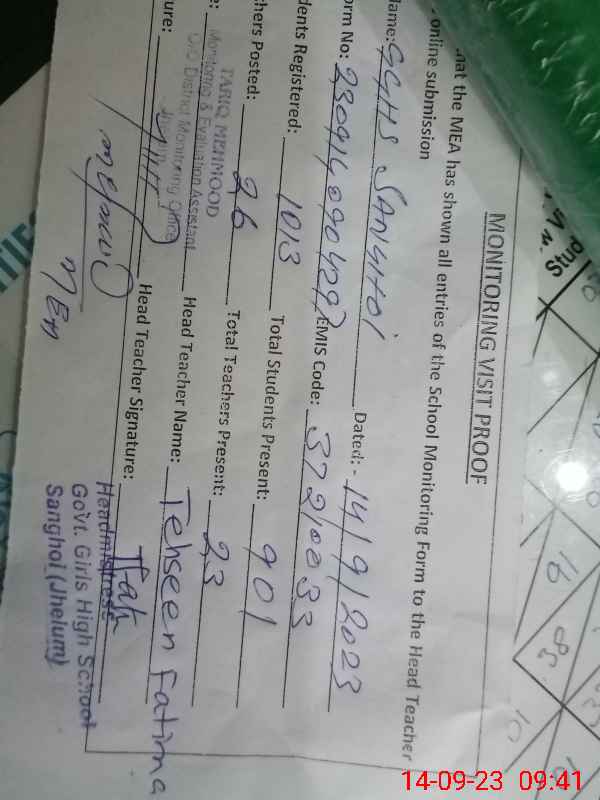 MONITORING VISIT PROOF
hat the MEA has shown all entries of the School Monitoring Form to the Head Teacher
online submission
Name: GGHS SANGHOI Dated:- 14/9/2023
orm No: EMIS Code: 37210033
dents Registered: 1013 Total Students Present: 901
chers Posted: 26 Total Teachers Present: 23
TARIQ MEHMOOD
Monitoring & Evaluation Assistant
O/O District Monitoring Office
Head Teacher Name: Tehseen Fatima
ure: Head Teacher Signature:
Headmistress
Govt. Girls High School
Sanghoi (Jhelum)
14-09-23 09:41